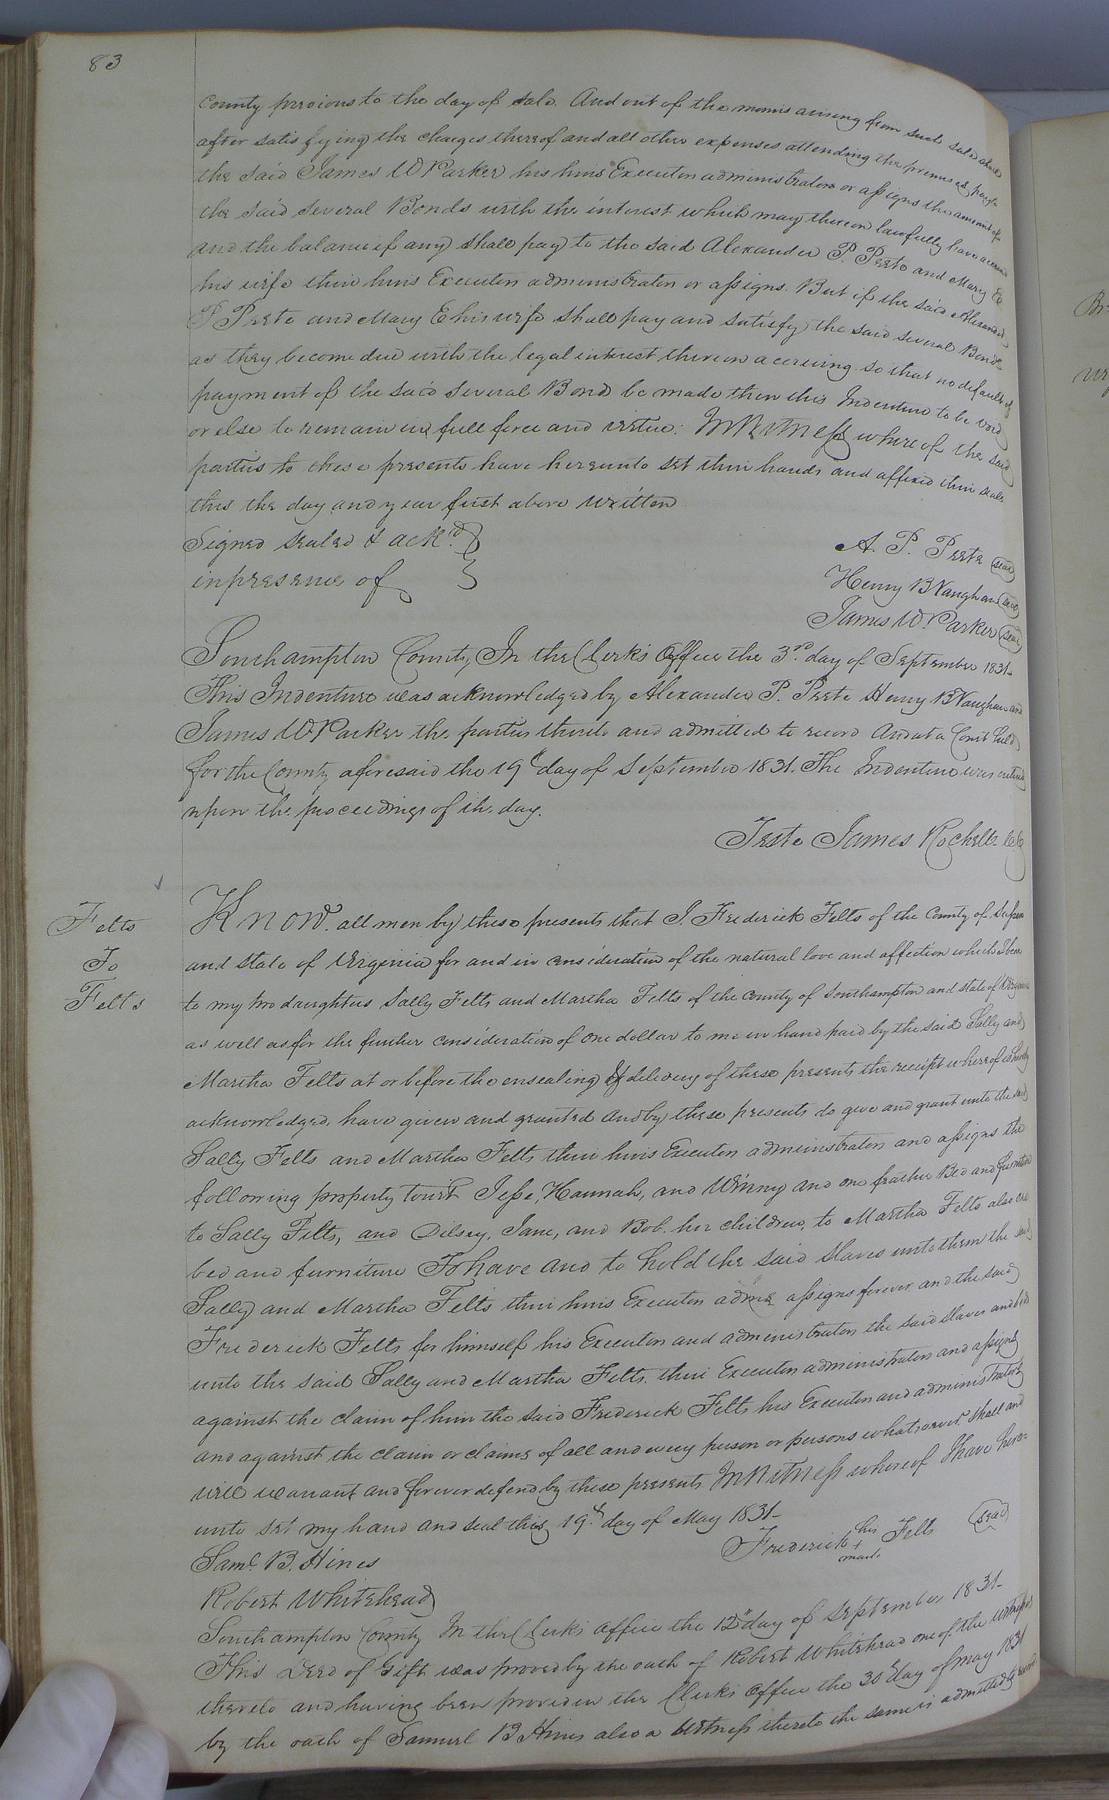 83
County previous to the day of sale. And out of the monies arising from such sale shall
after satisfying the charges thereof and all other expenses attending the premises, pay to
the said James W Parker his heirs Executors administrators or assigns the amount of
the said several Bonds with the interest which may thereon lawfully have accrued
and the balance if any shall pay to the said Alexander P. Peete and Mary E
his wife their heirs Executors administrators or assigns. But if the said Alexander
P Peete and Mary E his wife shall pay and satisfy the said several Bonds
as they become due with the legal interest thereon accruing so that no default of
payment of the said several Bond be made then this Indenture to be void
or else to remain in full force and virtue. In Witness whereof the said
parties to these presents have hereunto set their hands and affixed their seals
this the day and year first above written
Signed sealed & ackd.
in presence of
A. P. Peete seal
Henry B Vaughan seal
James W. Parker seal
Southampton County, In the Clerk's Office the 3rd. day of September 1831-
This Indenture was acknowledged by Alexander P. Peete Henry B Vaughan and
James W Parker the parties thereto and admitted to record And at a Court held
for the County aforesaid the 19th day of September 1831. The Indenture was entered
upon the proceedings of the day.
Teste James Rochelle
Felts
To
Felts
Know. all men by these presents that I. Frederick Felts of the County of Sussex
and State of Virginia for and in consideration of the natural love and affection which I bear
to my two daughters Sally Felts and Martha Felts of the County of Southampton and state of Virginia
as well as for the further consideration of one dollar to me in hand paid by the said Sally and
Martha Felts at or before the ensealing & delivery of these presents the receipt whereof is hereby
acknowledged, have given and granted and by these presents do give and grant unto the said
Sally Felts and Martha Felts their heirs Executors administrators and assigns the
following property towit Jesse, Hannah, and Winny and one feather Bed and furniture
to Sally Felts, and Dilsey, Jane, and Bob. her children, to Martha Felts also one
bed and furniture To have and to hold the said slaves unto them the said
Sally and Martha Felts their heirs Executors admrs assigns forever and the said
Frederick Felts for himself his Executors and administrators the said slaves and beds
unto the said Sally and Martha Felts. their Executors administrators and assigns
against the claim of him the said Frederick Felts his Executors and administrators
and against the claim or claims of all and every person or persons whatsoever shall and
will warrant and forever defend by these presents In Witness whereof I have here-
unto set my hand and seal this 19th day of May 1831-
Frederick his + mark Felts seal
Saml. B. Hines
Robert Whitehead
Southampton County In the Clerk's office the 12th day of September 1831-
This Deed of Gift was proved by the oath of Robert Whitehead one of the witnesses
thereto and having been proved in the Clerk's Office the 30th day of May 1831
by the oath of Samuel B Hines also a Witness thereto the same is admitted to record